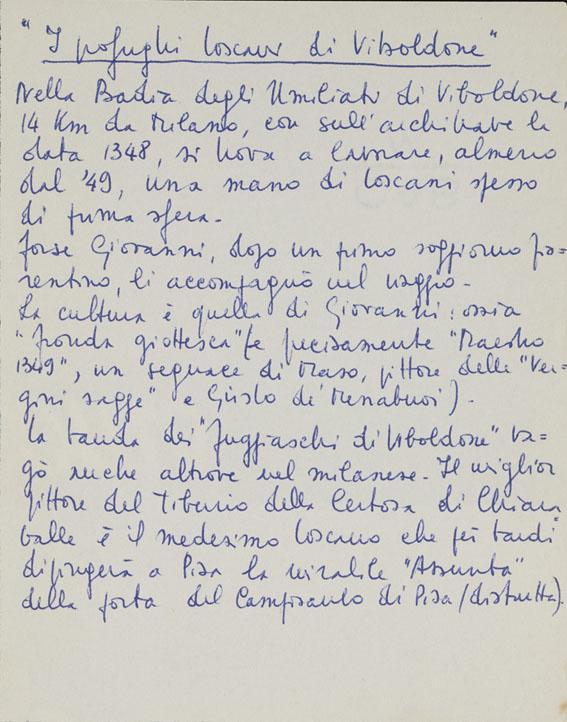 "I profughi toscani di Viboldone"
Nella Badia degli Umiliati di Viboldone,
14 Km da Milano, con sull'architrave la
data 1348, si trova a lavorare, almeno
dal '49, una mano di toscani spesso
di prima sfera.
Forse Giovanni, dopo un primo soggiorno fio-
rentino, li accompagnò nel viaggio.
La cultura è quella di Giovanni: ossia
"fronda giottesca" (e precisamente "Maestro
1349", un seguace di Maso, pittore delle "Ver-
gini sagge" e Giusto de' Menabuoi).
La banda dei "fuggiaschi di Viboldone" va-
gò anche altrove nel milanese. Il miglior
pittore del Tiburio della Certosa di Chiara
valle è il medesimo toscano che più tardi
dipingerà a Pisa la mirabile "Assunta"
della porta del Camposanto di Pisa (distrutta).